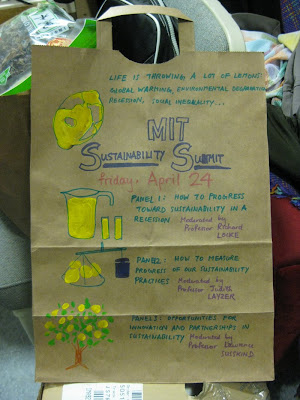 LIFE IS THROWING A LOT OF LEMONS:
GLOBAL WARMING, ENVIRONMENTAL DEGRADATION
RECESSION, SOCIAL INEQUALITY...
MIT
SUSTAINABILITY SUMMIT
friday, April 24
PANEL 1: HOW TO PROGRESS
TOWARD SUSTAINABILITY IN A
RECESSION Moderated by
Professor Richard
LOCKE
PANEL 2: HOW TO MEASURE
PROGRESS OF OUR SUSTAINABILITY
PRACTICES Moderated by
Professor Judith
LAYZER
PANEL 3: OPPORTUNITIES FOR
INNOVATION AND PARTNERSHIPS IN
SUSTAINABILITY Moderated by
Professor
SUSSKIND